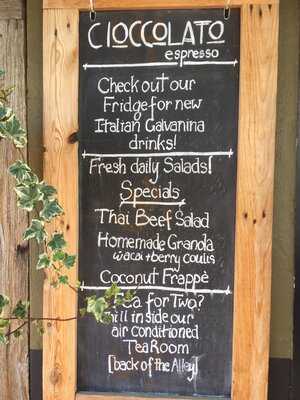 CIOCCOLATO
espresso
Check out our
Fridge for new
Italian Galvanina
drinks!
Fresh daily Salads!
Specials
Thai Beef Salad
Homemade Granola
w acai + berry coulis
Coconut Frappè
Tea for Two?
Chill inside our
air conditioned
TeaRoom
[back of the Alley]